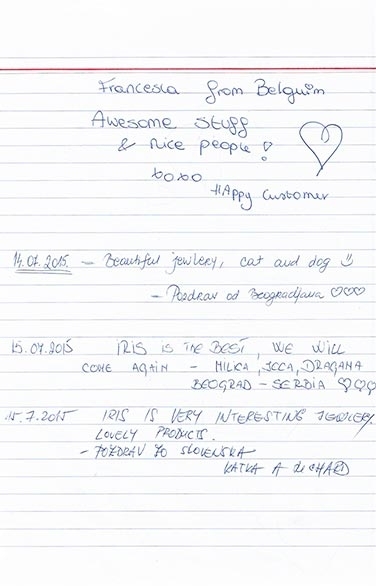 Francesca from Belguim
Awesome stuff
& nice people!
xoxo
Happy Customer
14.07.2015. – Beautiful jewlery, cat and dog
– Pozdrav od Beogradjana ♡♡♡
15.07.2015 IRIS is the BEST, WE WILL
COME AGAIN – MILICA, JOCA, DRAGANA
BEOGRAD – SERBIA ♡♡♡
15.7.2015 IRIS IS VERY INTERESTING JEWLERY.
LOVELY PRODUCTS.
– POZDRAV ZO SLOVENSKA
KATKA A RICHARD